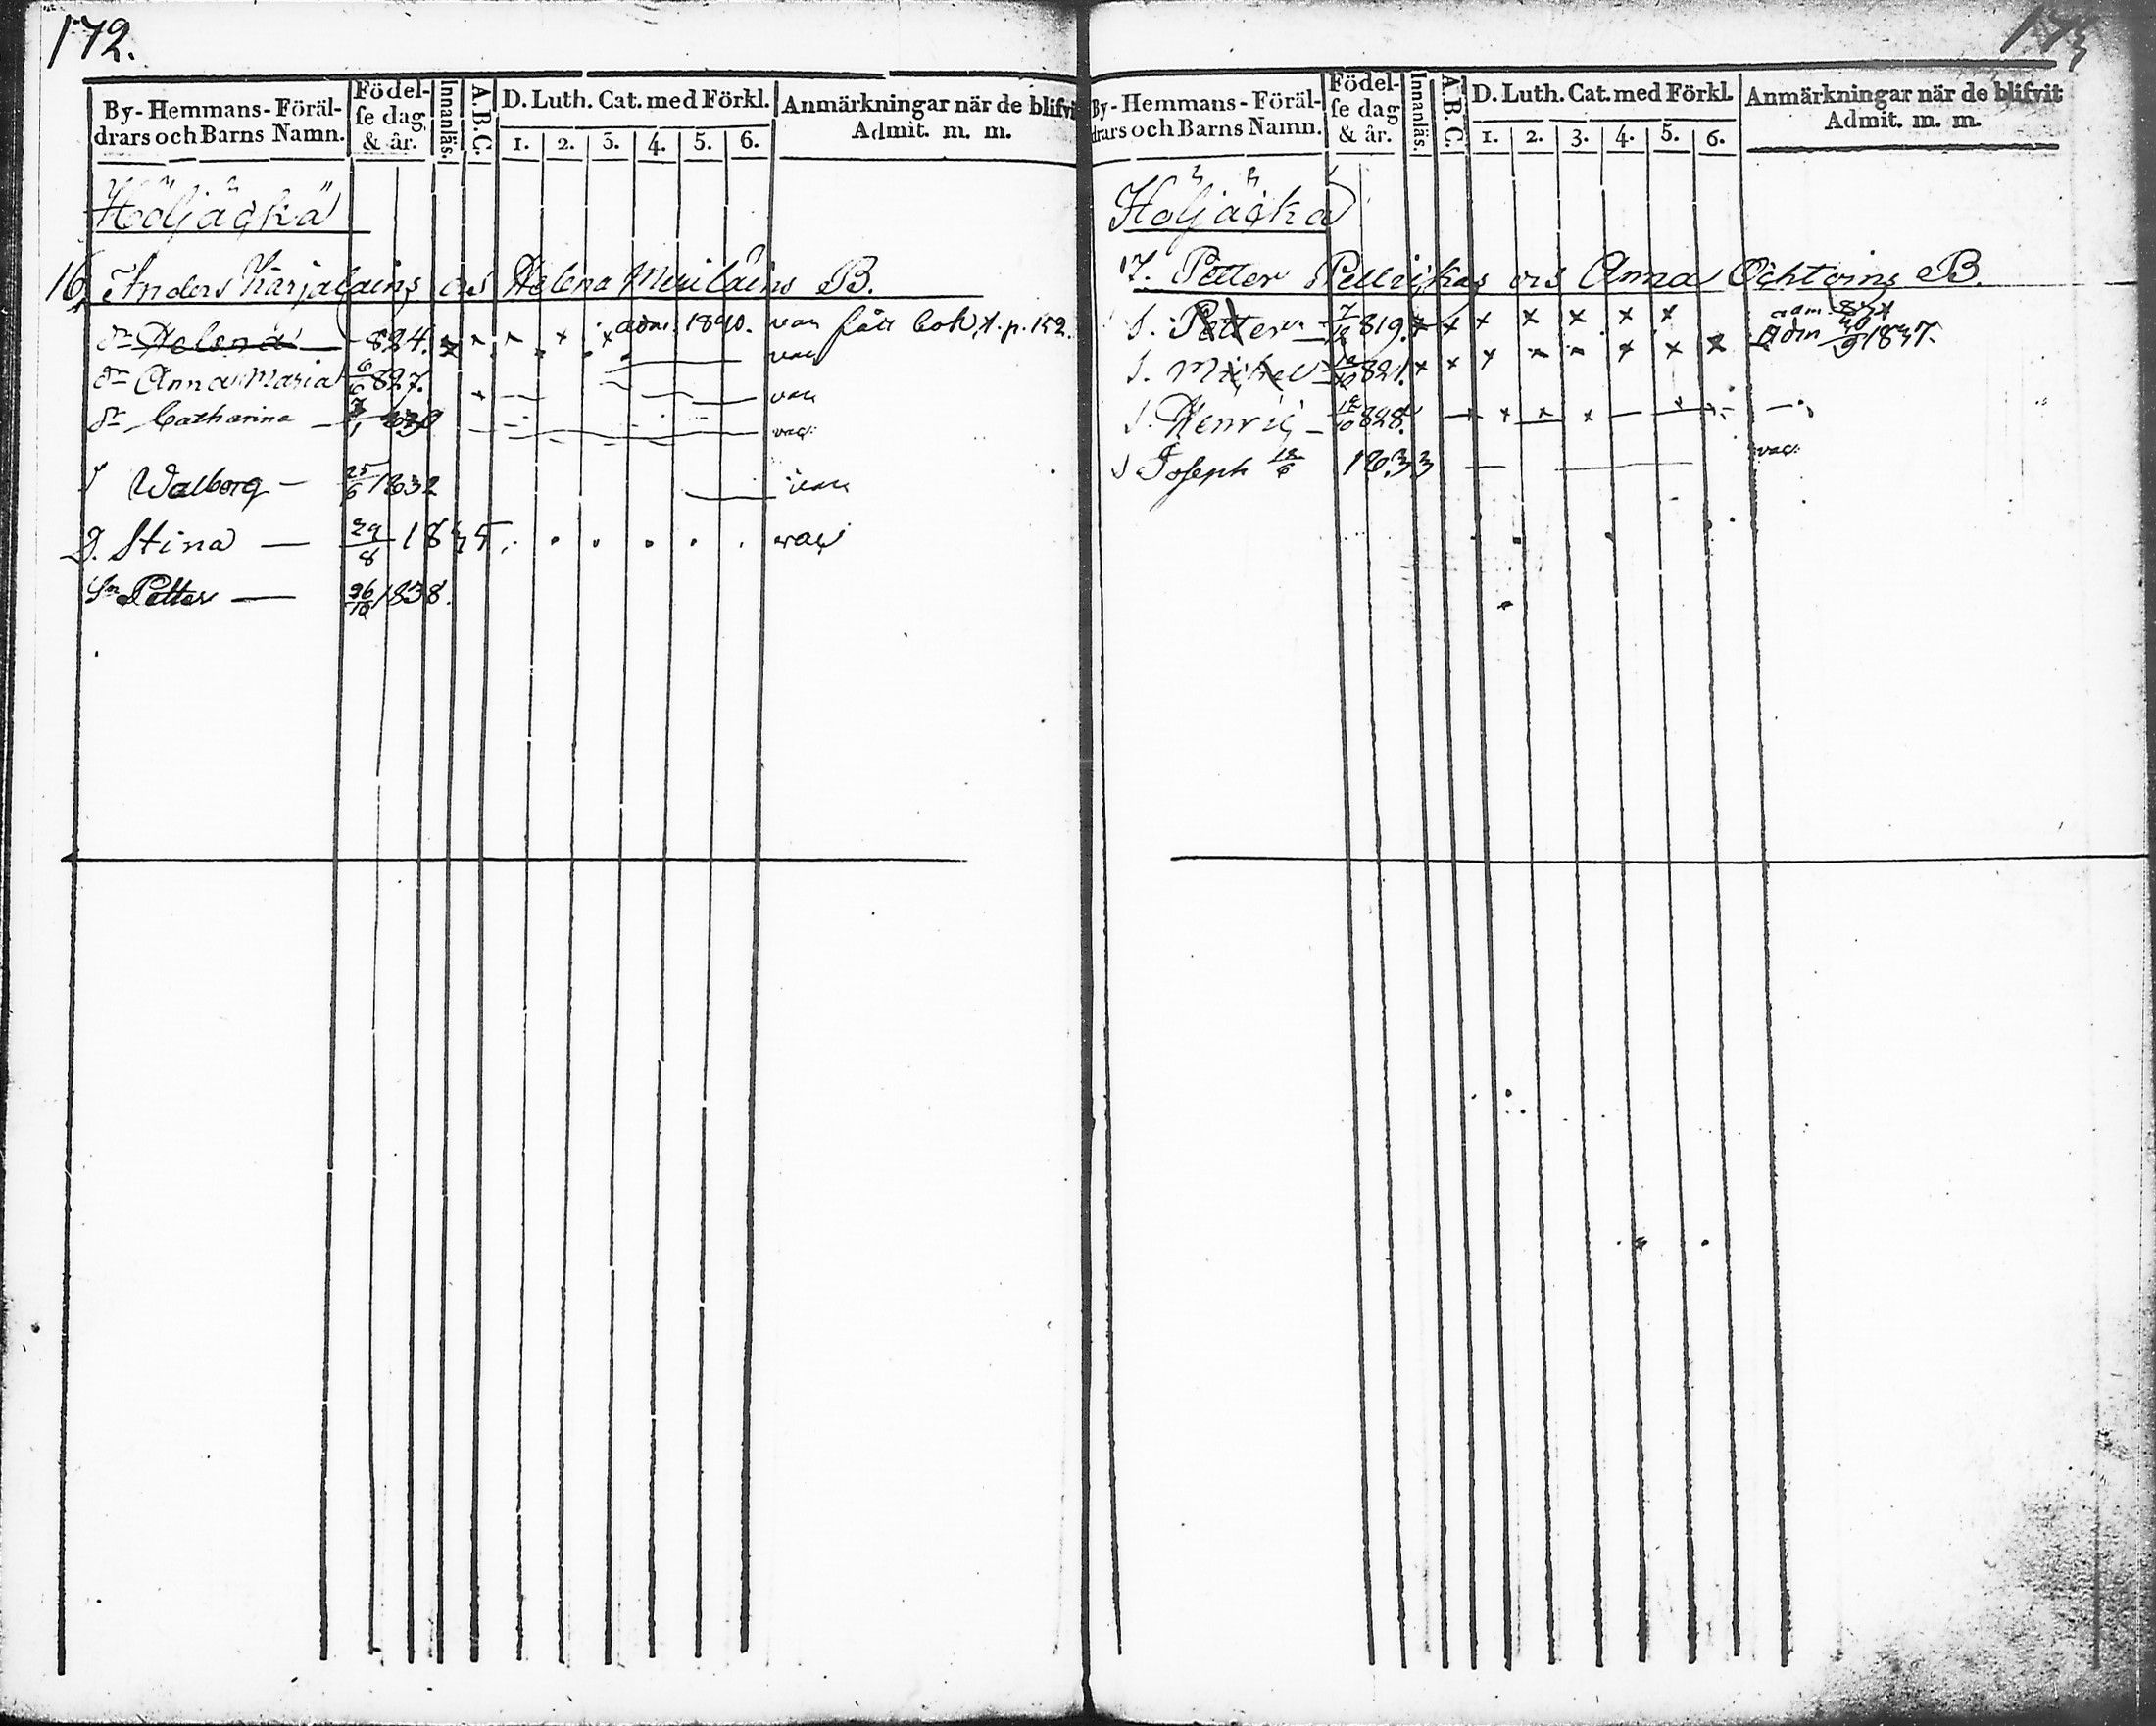 172.
By-Hemmans-Föräl-
drars och Barns Namn.
Födel-
se dag
& år.
Innanläs.
A.B.C.
D. Luth. Cat. med Förkl.
1. 2. 3. 4. 5. 6.
Anmärkningar när de blifvit
Admit. m. m.
Höljäckä
16. Anders Karjalains Helena Meriläins B.
Helena 824. adm. 1840. vac fått bok, t. p. 152.
Anna Maria 6/6 827. vac
Catharina vac
Walborg 25/6 1832 vac
D. Stina 29/8 1835 vac
Sn Petter 26/10 1838.
173
By-Hemmans-Föräl-
drars och Barns Namn.
Födel-
se dag
& år.
Innanläs.
A.B.C.
D. Luth. Cat. med Förkl.
1. 2. 3. 4. 5. 6.
Anmärkningar när de blifvit
Admit. m. m.
Höljäckä
17. Petter Pellrikas Anna Ochtoins B.
S. Petter 819. adm.
S. Michel 821. adm 1837.
S. Henric 828.
S Joseph 18/6 1833 vac